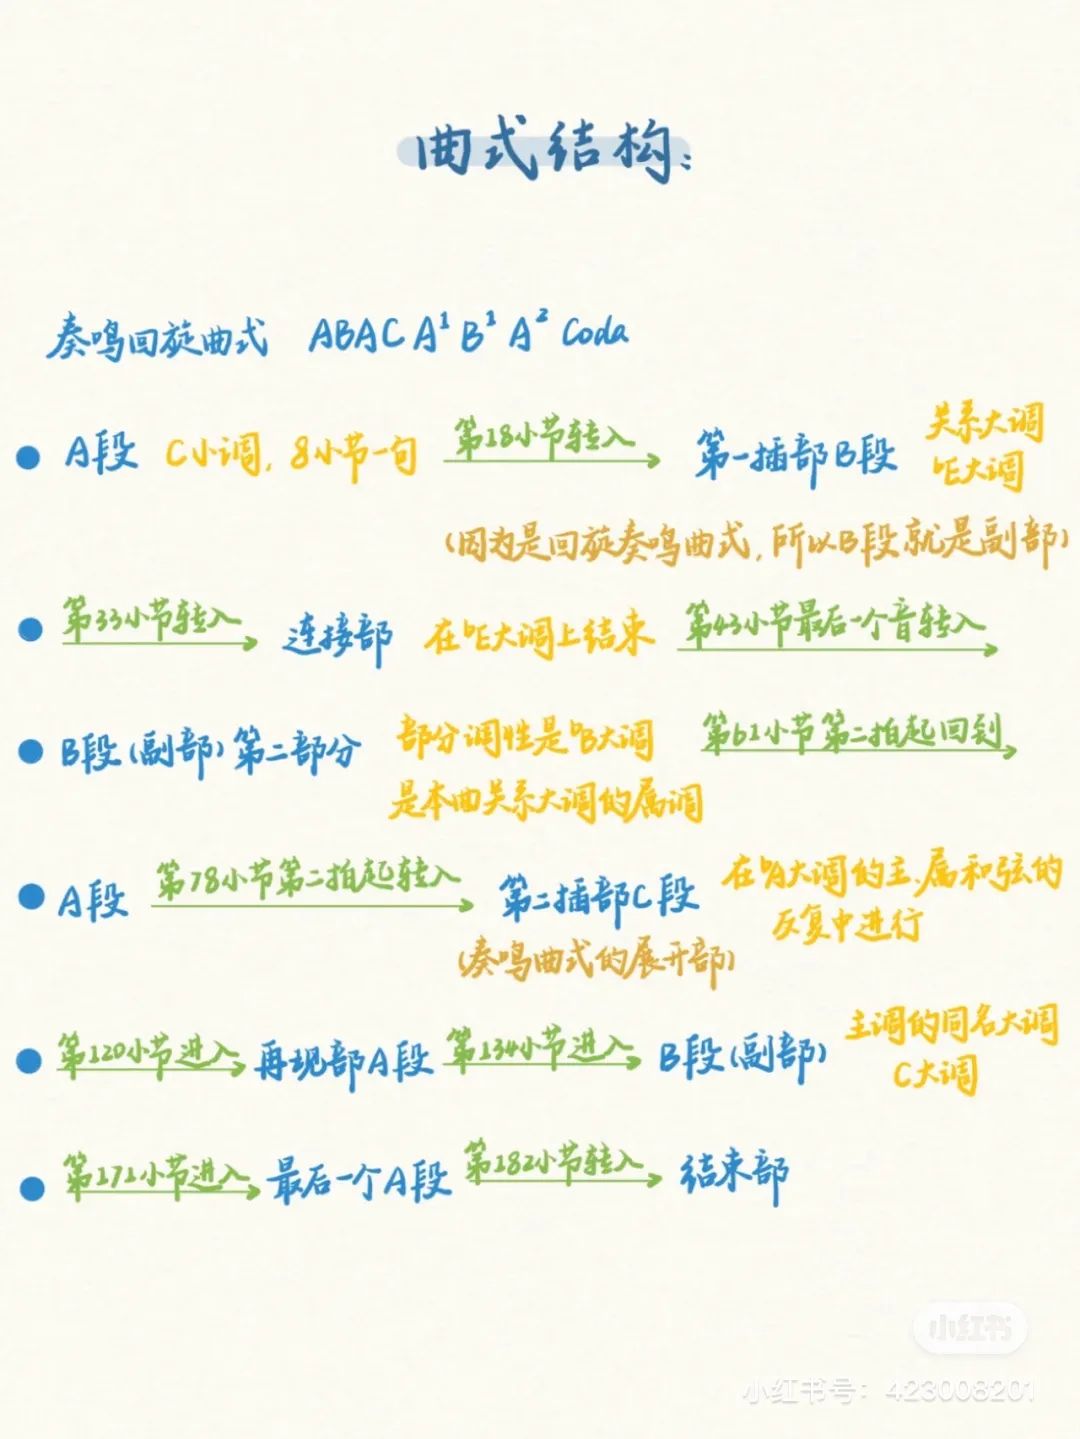 曲式结构:
奏鸣回旋曲式 ABACA¹B¹A² Coda
A段 C小调,8小节一句 第18小节转入 第一插部B段 关系大调
♭E大调
(因为是回旋奏鸣曲式,所以B段就是副部)
第33小节转入 连接部 在♭E大调上结束 第43小节最后一个音转入
B段(副部)第二部分 部分调性是♭B大调 第61小节第二拍起回到
是本曲关系大调的属调
A段 第78小节第二拍起转入 第二插部C段 在♭A大调的主、属和弦的
反复中进行
(奏鸣曲式的展开部)
第120小节进入 再现部A段 第134小节进入 B段(副部) 主调的同名大调
C大调
第171小节进入 最后一个A段 第182小节转入 结束部
小红书
小红书号：423008201